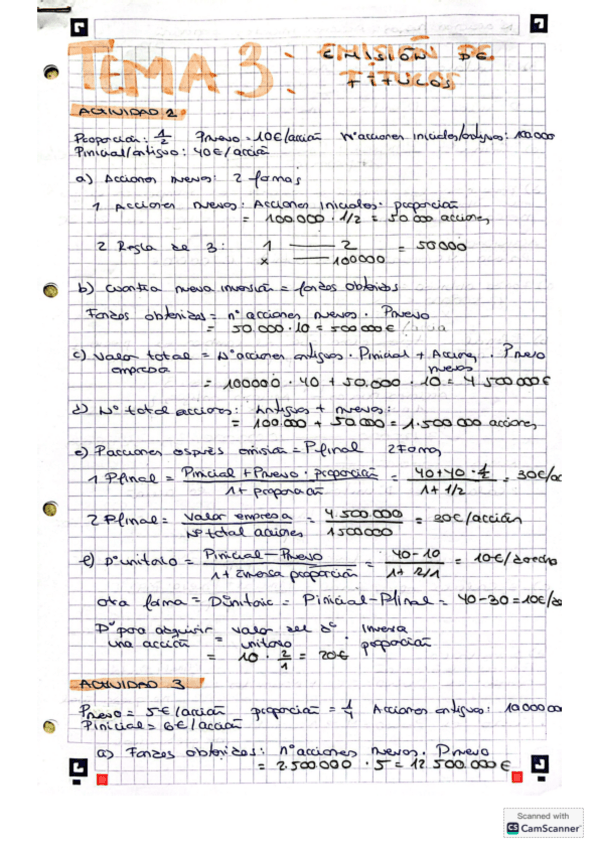 TEMA 3: EMISIÓN DE
TÍTULOS
ACTIVIDAD 2
Proporción: 1/2 Pnuevo = 10€/acción Nº acciones iniciales/antiguos: 100.000
Pinicial/antiguo: 40€/acción
a) Acciones nuevas: 2 formas
1 Acciones nuevas: Acciones iniciales · proporción
= 100.000 · 1/2 = 50 000 acciones
2 Regla de 3: 1 —— 2 = 50000
x —— 100000
b) Cuantía nueva inversión = fondos obtenidos
Fondos obtenidos = nº acciones nuevas · Pnuevo
= 50.000 · 10 = 500 000 €
c) Valor total empresa = Nº acciones antiguas · Pinicial + Acciones nuevas · Pnuevo
= 100000 · 40 + 50.000 · 10 = 4 500 000€
d) Nº total acciones: Antiguas + nuevas:
= 100.000 + 50.000 = 1.500 000 acciones
e) Pacciones después emisión = Pfinal 2 Formas
1 Pfinal = Pinicial + Pnuevo · proporción / 1 + proporción = 40 + 40 · 1/2 / 1 + 1/2 = 30€/ac
2 Pfinal = Valor empresa / Nº total acciones = 4.500.000 / 1500000 = 30€/acción
f) Dº unitario = Pinicial - Pnuevo / 1 + inversa proporción = 40 - 10 / 1 + 2/1 = 10€/derecho
otra forma = Dºunitario = Pinicial - Pfinal = 40 - 30 = 10€/de
Dº para adquirir una acción = valor del dº unitario · inversa proporción
= 10 · 2/1 = 20€
ACTIVIDAD 3
Pnuevo = 5€/acción proporción = 1/4 Acciones antiguas: 10 000 000
Pinicial = 6€/acción
a) Fondos obtenidos: nº acciones nuevas · Pnuevo
= 2.500 000 · 5 = 12 500.000 €
Scanned with
CS CamScanner